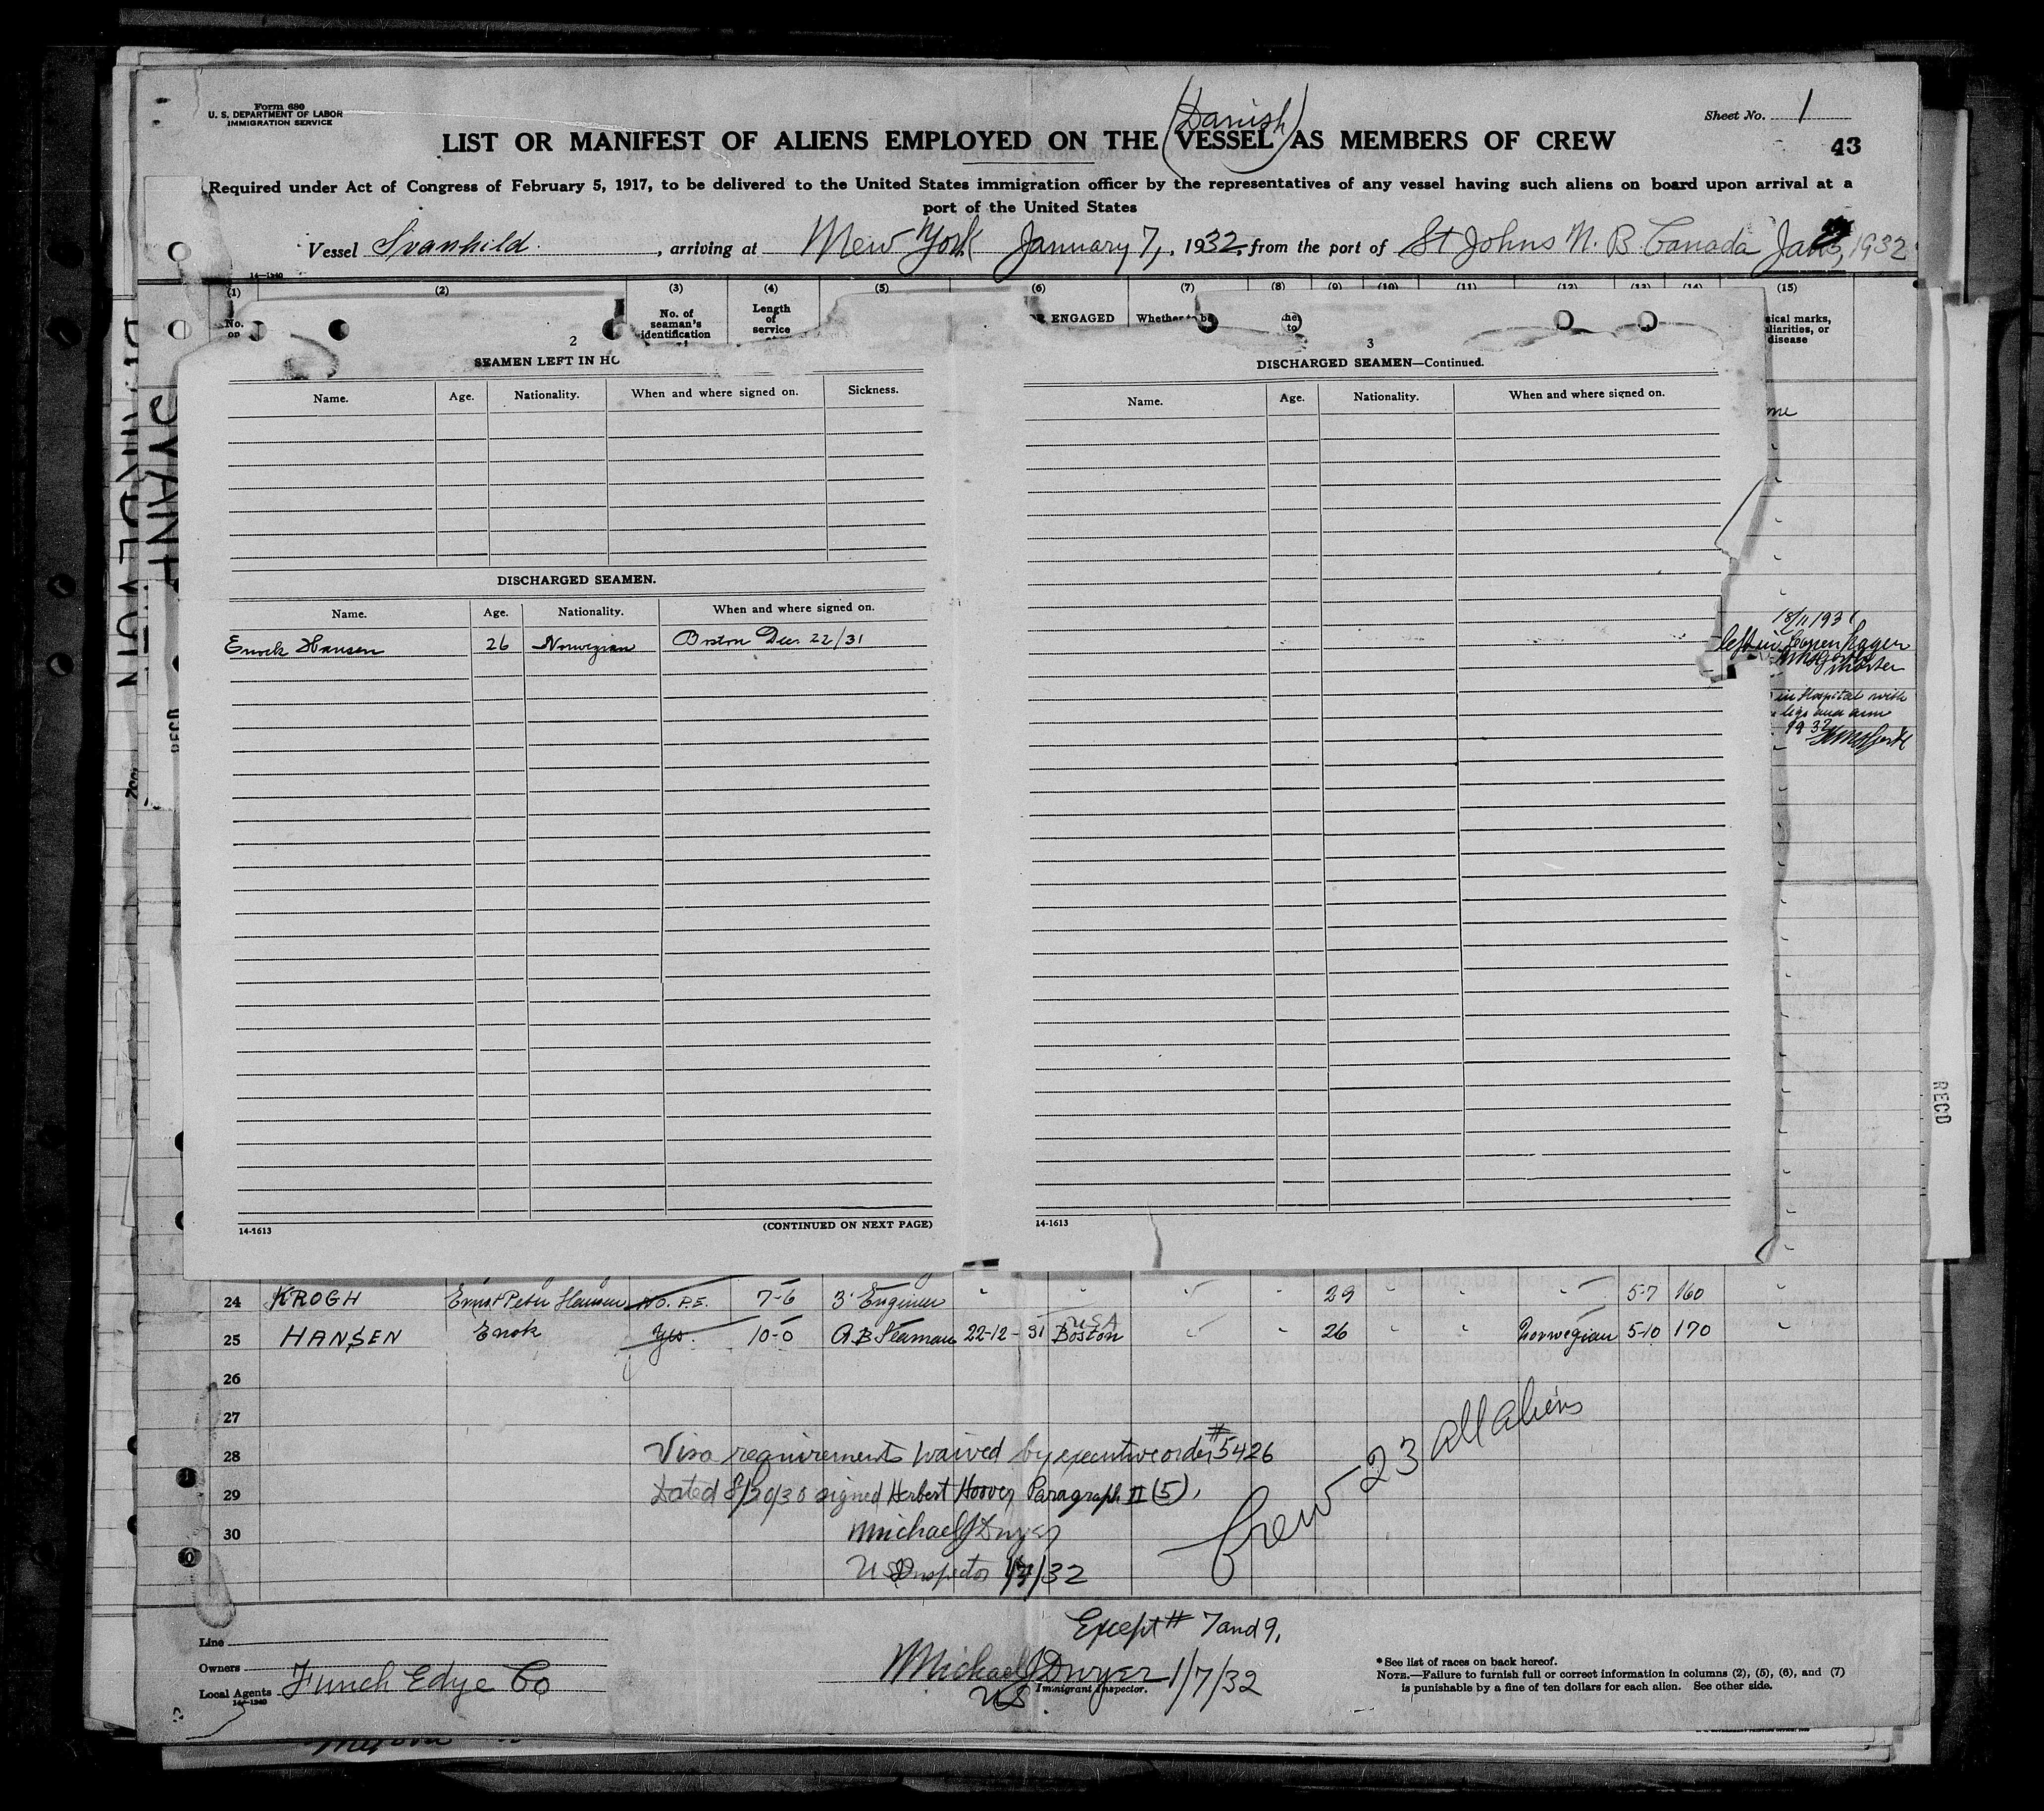 Form 680
U. S. DEPARTMENT OF LABOR
IMMIGRATION SERVICE
Sheet No. 1
(Danish)
LIST OR MANIFEST OF ALIENS EMPLOYED ON THE VESSEL AS MEMBERS OF CREW
43
Required under Act of Congress of February 5, 1917, to be delivered to the United States immigration officer by the representatives of any vessel having such aliens on board upon arrival at a
port of the United States
Vessel Svanhild, arriving at New York January 7, 1932, from the port of St Johns N. B. Canada Jan 1932
14-1240
(1) (2) (3) (4) (5) (6) (7) (8) (9) (10) (11) (12) (13) (14) (15)
No. of seaman's identification
Length of service
ENGAGED
Whether to be
sical marks,
liarities, or
disease
2
SEAMEN LEFT IN HO
Name. Age. Nationality. When and where signed on. Sickness.
DISCHARGED SEAMEN.
Name. Age. Nationality. When and where signed on.
Enock Hansen 26 Norwegian Boston Dec 22/31
14-1613 (CONTINUED ON NEXT PAGE)
3
DISCHARGED SEAMEN—Continued.
Name. Age. Nationality. When and where signed on.
14-1613
18/11 1931
left in Copenhagen
Master
in Hospital with
legs and arm
1932
RECD
24 KROGH Ernst Peter Hansen NO. P.E. 7-6 3' Engineer " " " 29 " " " 5-7 160 "
25 HANSEN Enok Yes 10-0 A B Seaman 22-12-31 Boston USA " " 26 " " Norwegian 5-10 170 "
26
27
28
29
30
Visa requirements waived by executive order #5426
Dated 8/20/30 signed Herbert Hoover Paragraph II (5),
Michael J Dwyer
US Inspector 1/7/32
Crew 23 all aliens
Except # 7 and 9,
Line
Owners
Local Agents Funch Edye Co
14-1240
Michael J Dwyer 1/7/32
US Immigrant Inspector.
* See list of races on back hereof.
NOTE.—Failure to furnish full or correct information in columns (2), (5), (6), and (7)
is punishable by a fine of ten dollars for each alien. See other side.